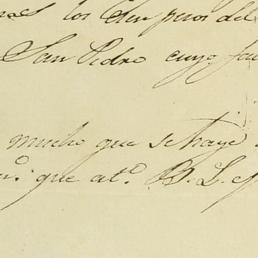 los Cien pesos del
San Pedro cuyo
mucho que se haye
que at.º B. L.